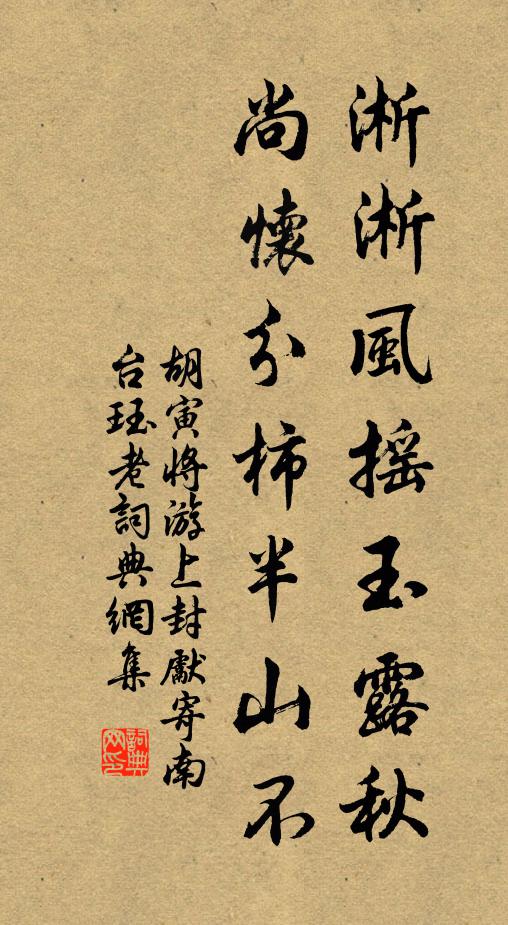 淅淅風搖玉露秋
尚懷分柿半山不
胡寅將游上封獻寄南
台珏老詞典網集
詞典網印